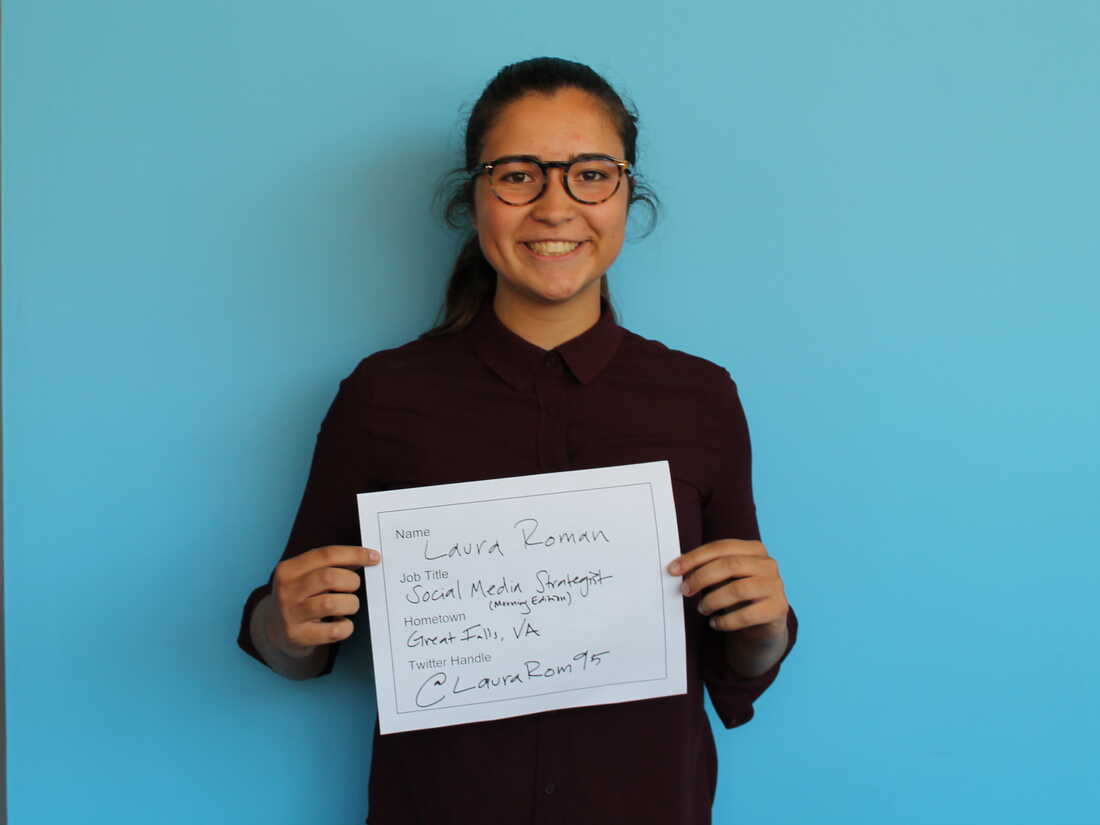 Name
Laura Roman
Job Title
Social Media Strategist
(Morning Edition)
Hometown
Great Falls, VA
Twitter Handle
@LauraRom95